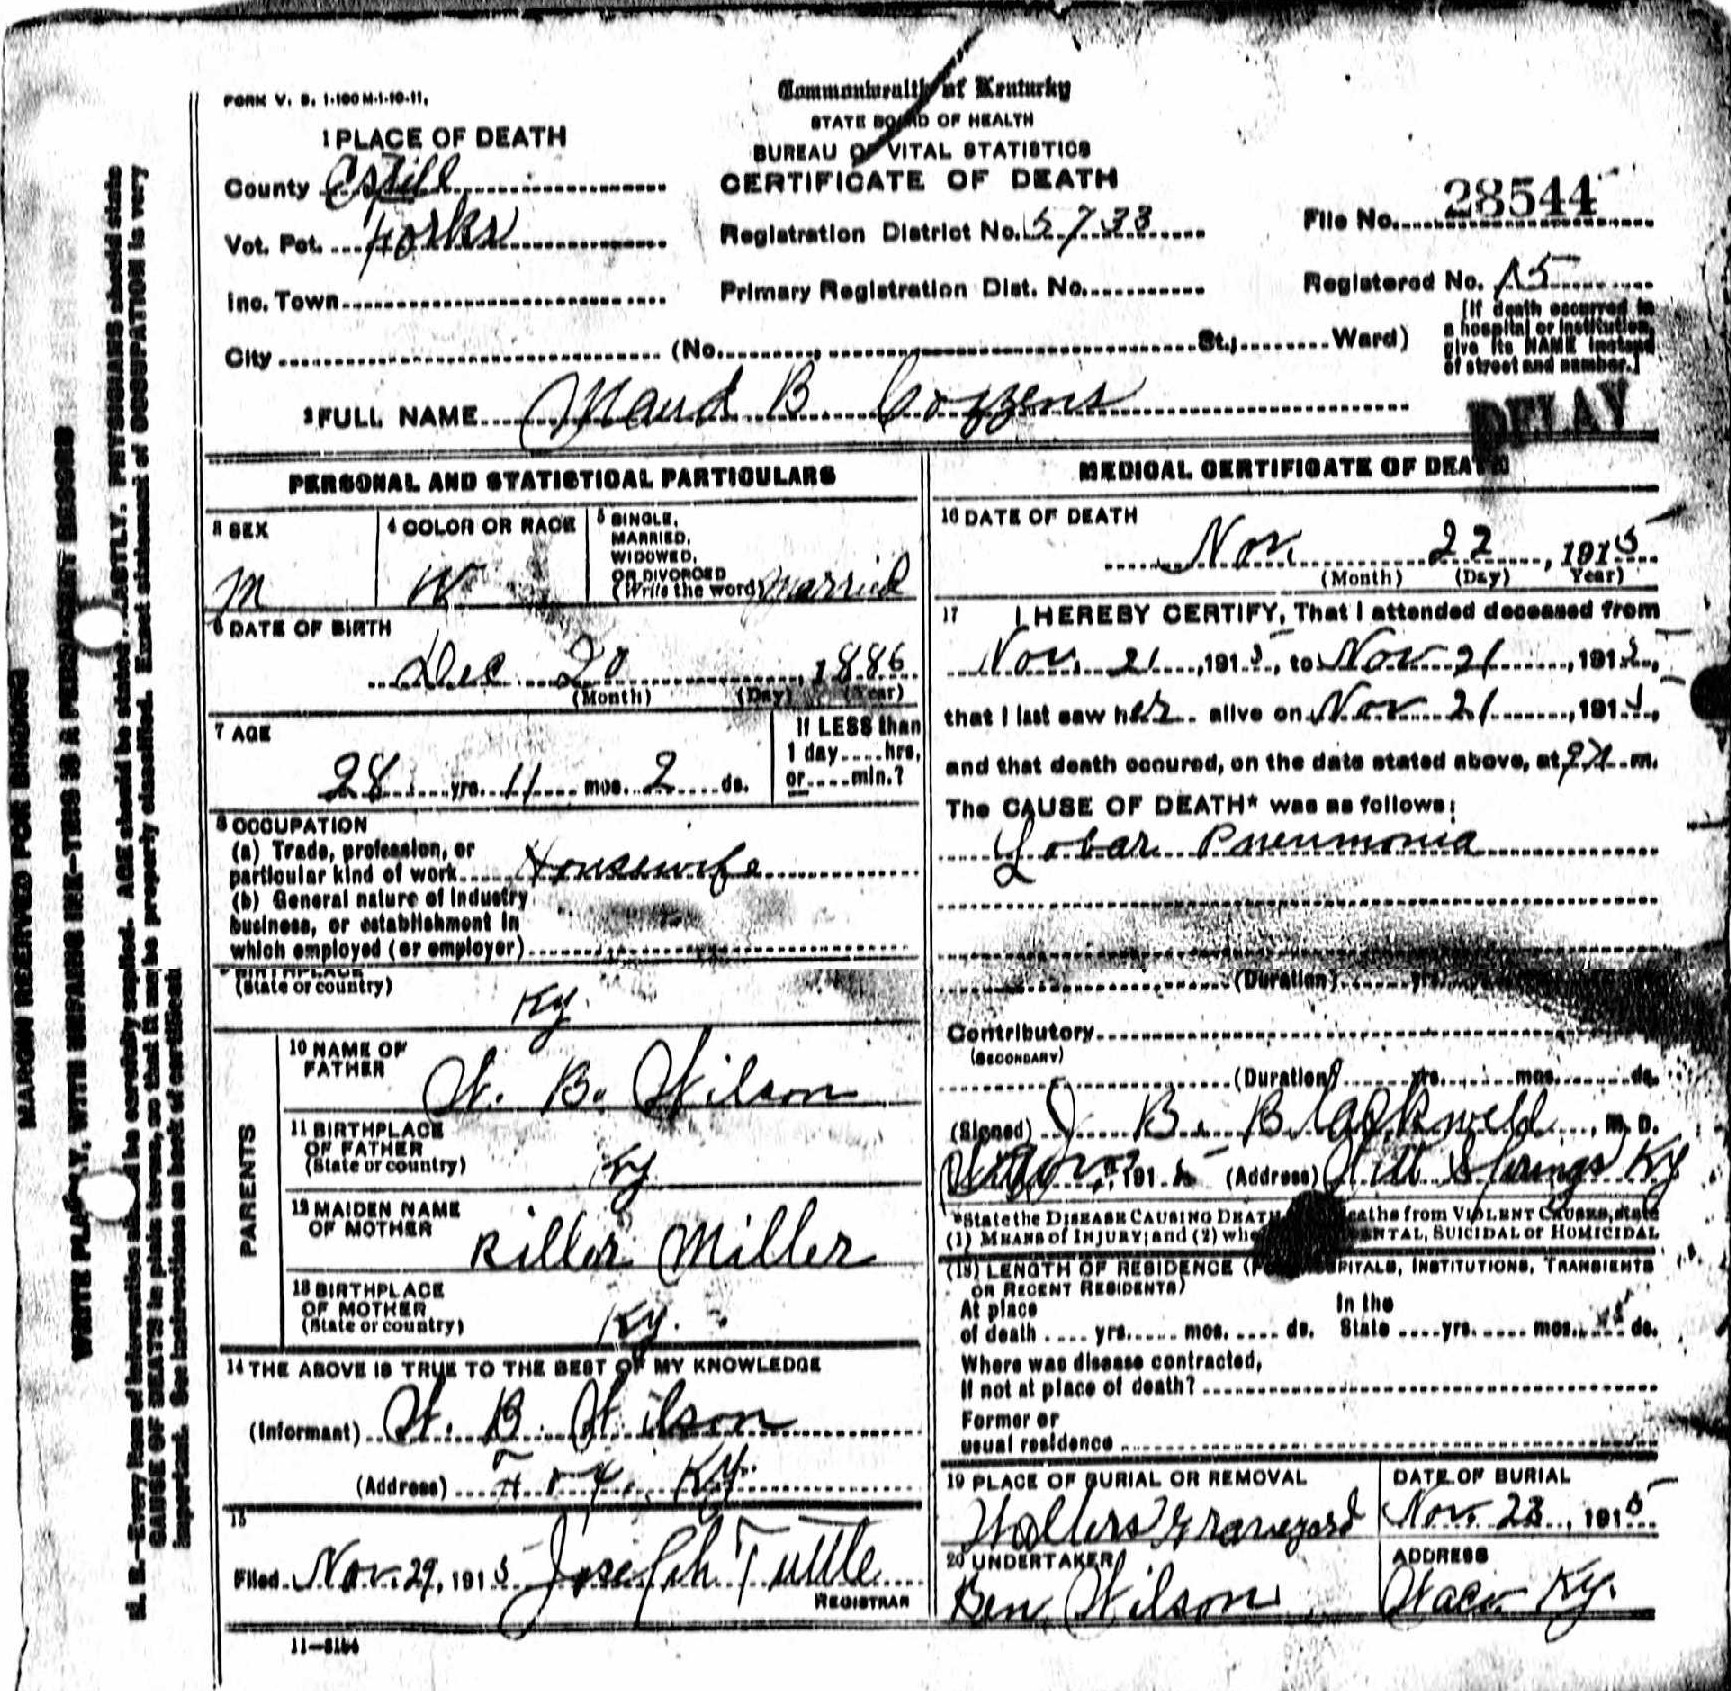 FORM V. S. 1-100 M-1-10-11.
Commonwealth of Kentucky
STATE BOARD OF HEALTH
BUREAU OF VITAL STATISTICS
CERTIFICATE OF DEATH
1 PLACE OF DEATH
County Estill
Vot. Pct. Forks
Inc. Town
City (No. St., Ward)
Registration District No. 5733
Primary Registration Dist. No.
File No. 28544
Registered No. 15
[If death occurred in
a hospital or institution,
give its NAME instead
of street and number.]
2 FULL NAME Maud B Cozzens
DELAY
PERSONAL AND STATISTICAL PARTICULARS
3 SEX
M
4 COLOR OR RACE
W
5 SINGLE,
MARRIED,
WIDOWED,
OR DIVORCED
(Write the word) Married
6 DATE OF BIRTH
Dec 20, 1886
(Month) (Day) (Year)
7 AGE
28 yrs. 11 mos. 2 ds.
If LESS than
1 day....hrs.
or....min.?
8 OCCUPATION
(a) Trade, profession, or
particular kind of work Housewife
(b) General nature of industry
business, or establishment in
which employed (or employer)
BIRTHPLACE
(State or country)
Ky.
PARENTS
10 NAME OF
FATHER
W. B. Wilson
11 BIRTHPLACE
OF FATHER
(State or country)
Ky
12 MAIDEN NAME
OF MOTHER
Miller
13 BIRTHPLACE
OF MOTHER
(State or country)
Ky.
14 THE ABOVE IS TRUE TO THE BEST OF MY KNOWLEDGE
(Informant) W. B. Wilson
(Address) Ky.
15
Filed Nov. 29, 1915 Joseph Tuttle
REGISTRAR
11-3184
MEDICAL CERTIFICATE OF DEATH
16 DATE OF DEATH
Nov. 22, 1915
(Month) (Day) Year)
17 I HEREBY CERTIFY, That I attended deceased from
Nov. 21, 1915, to Nov 21, 1915,
that I last saw her alive on Nov 21, 1915,
and that death occured, on the date stated above, at m.
The CAUSE OF DEATH* was as follows:
Lobar Pneumonia
(Duration) yrs.
Contributory
(SECONDARY)
(Duration) yrs. mos. ds.
(Signed) J. B. Blackwell, M. D.
191 (Address) Witt Springs Ky
*State the DISEASE CAUSING DEATH deaths from VIOLENT CAUSES, state
(1) MEANS of INJURY; and (2) SUICIDAL or HOMICIDAL
(18) LENGTH OF RESIDENCE (HOSPITALS, INSTITUTIONS, TRANSIENTS
OR RECENT RESIDENTS)
At place
of death .... yrs. .... mos. .... ds.
In the
State .... yrs. .... mos. .... ds.
Where was disease contracted,
if not at place of death?
Former or
usual residence
19 PLACE OF BURIAL OR REMOVAL
Graveyard
DATE OF BURIAL
Nov. 23, 1915
20 UNDERTAKER
Ben Wilson
ADDRESS
Waco Ky.
MARGIN RESERVED FOR BINDING
WRITE PLAINLY, WITH UNFADING INK—THIS IS A PERMANENT RECORD
N. B.—Every item of information should be carefully supplied. AGE should be stated EXACTLY. PHYSICIANS should state
CAUSE OF DEATH in plain terms, so that it may be properly classified. Exact statement of OCCUPATION is very
important. See instructions on back of certificate.